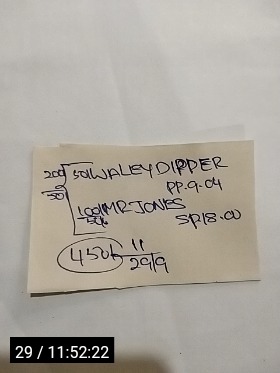 200 50 WALEY DIPPER
50 PP.9.04
100 MR JONES
50 SP18.00
450 11
29/9
29 / 11:52:22